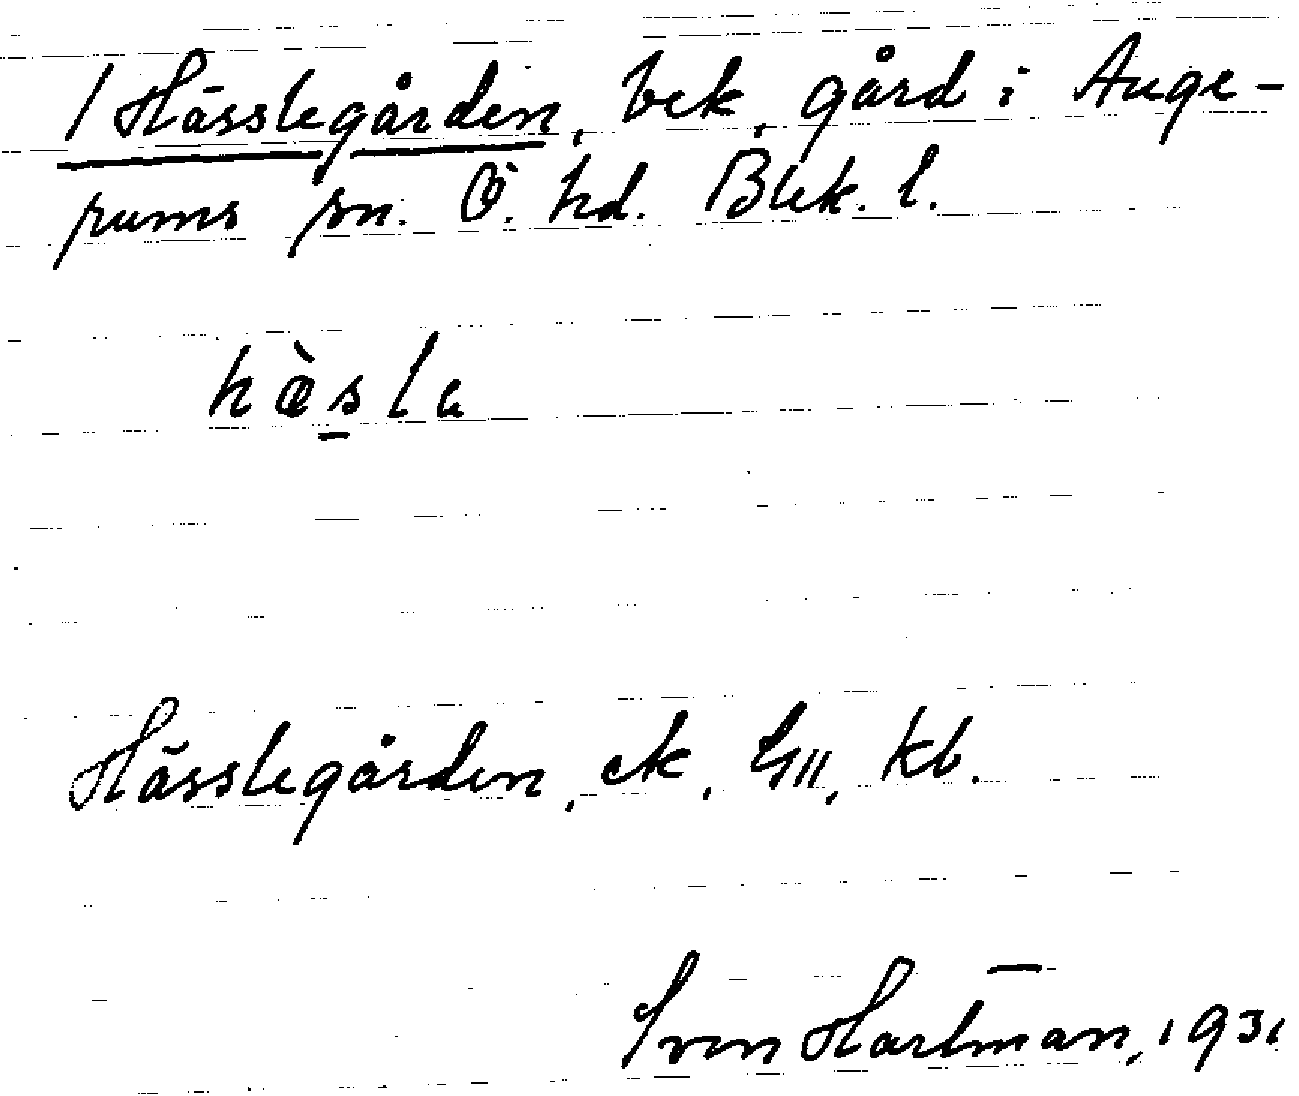 / Hässlegården, bek. gård i Auge-
rums sn. Ö. hd. Blek. l.
hæ̀sla
Hässlegården, ek, Kb.
Sven Hartman, 1931